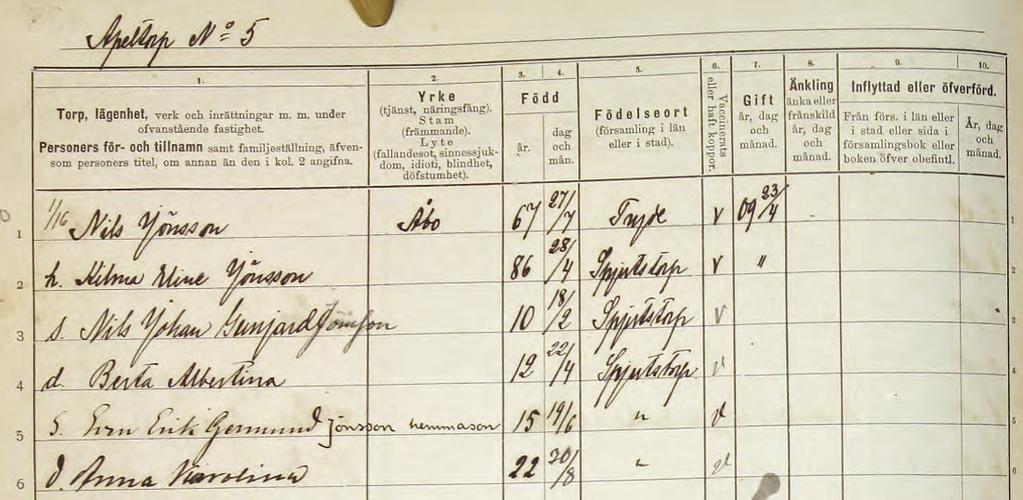 Apeltorp Nº 5
1. 2. 3. 4. 5. 6. 7. 8. 9. 10.
Torp, lägenhet, verk och inrättningar m. m. under ofvanstående fastighet.
Personers för- och tillnamn samt familjeställning, äfvensom personers titel, om annan än den i kol. 2 angifna.
Yrke (tjänst, näringsfång). Stam (främmande). Lyte (fallandesot, sinnessjukdom, idioti, blindhet, döfstumhet).
Född
år. dag och mån.
Födelseort (församling i län eller i stad).
Vaccinerats eller haft koppor.
Gift år, dag och månad.
Änkling änka eller frånskild år, dag och månad.
Inflyttad eller öfverförd.
Från förs. i län eller i stad eller sida i församlingsbok eller boken öfver obefintl.
År, dag och månad.
1 1/16 Nils Jönsson Åbo 67 27/7 Tryde v 09 23/4 1
2 h. Hilma Eline Jönsson 86 28/4 Spjutstorp v " 2
3 s. Nils Johan Jönsson 10 18/2 Spjutstorp v 3
4 d. Berta Albertina 12 22/4 Spjutstorp v 4
5 S. Sven Erik Germund Jönsson hemmason 15 19/6 " 5
6 d. Anna Karolina 22 20/8 " 6